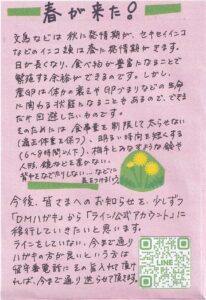 春が来た!
文鳥などは秋に発情期が、セキセイインコ
などのインコ類は春に発情期がきます。
日が長くなり、食べ物が豊富になることで
繁殖する余裕ができるのです。しかし、
産卵は体力の衰えや卵づまりなどの生命
に関わる状態になることもあるので、できる
だけ回避したいものです。
そのためには食事量を制限して太らせない
(適正体重を保つ)、明るい時間を短くする
(6~8時間以下)、相手とみなすような鈴や
人形、鏡などを置かない、
背中をなでたりしない…などに
気をつけましょう
今後、皆さまへのお知らせを、少しずつ
「DMハガキ」から「ライン公式アカウント」に
移行していきたいと思います。
ラインをしていない、今まで通り
ハガキの方が良いという方は
留守番電話にその旨入れて頂け
れば、今まで通り送らせて頂きます。
LINE